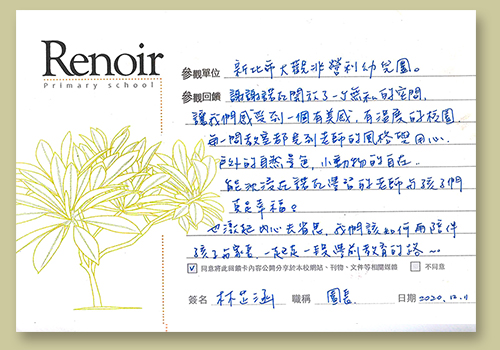 Renoir
Primary school
參觀單位 新北市大觀非營利幼兒園。
參觀回饋 謝謝諾瓦開放了一片無私的空間,
讓我們感受到一個有美感,有溫度的校園
每一間教室都見到老師的風格與用心.
戶外的自然景色,小動物的自在.
能沉浸在諾瓦學習的老師与孩子們
真是幸福。
也激起內心去省思,我們該如何再陪伴
孩子与家長,一起走一段學前教育的路~
同意將此回饋卡內容公開分享於本校網站、刊物、文件等相關媒體 不同意
簽名 林芷涵 職稱 園長 日期 2020.12.11